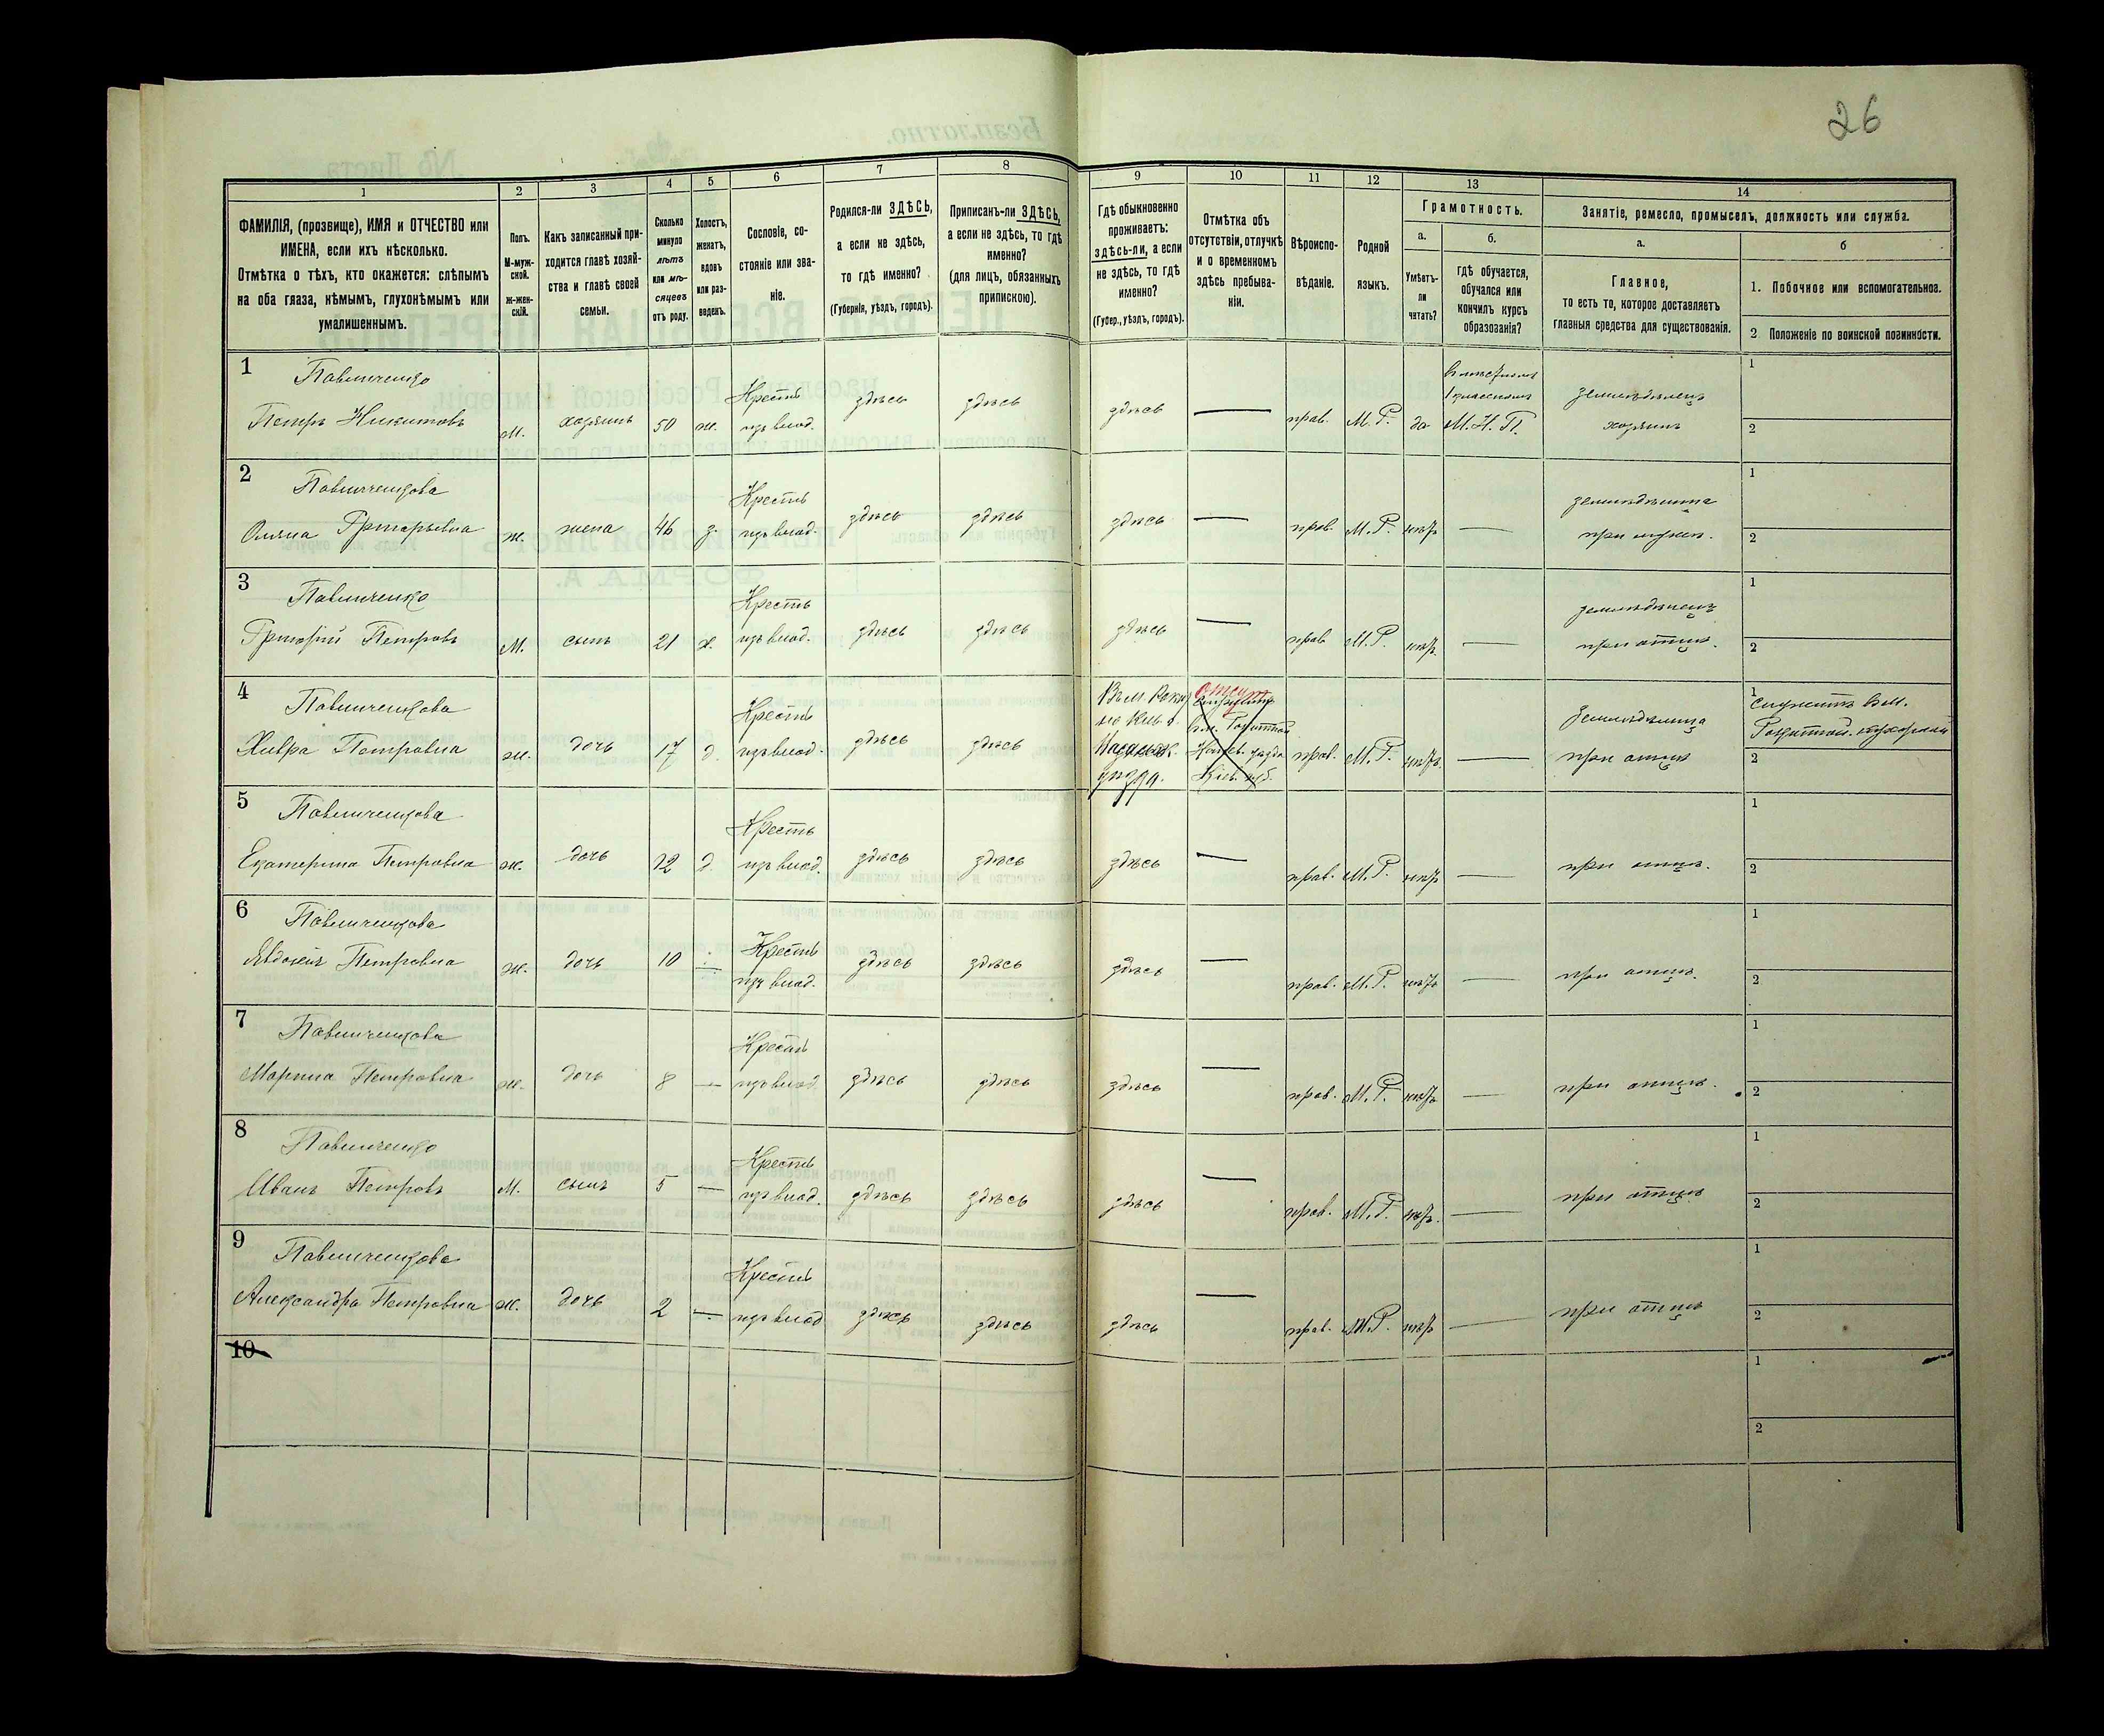 26
1 2 3 4 5 6 7 8 9 10 11 12 13 14
ФАМИЛІЯ, (прозвище), ИМЯ и ОТЧЕСТВО или
ИМЕНА, если ихъ нѣсколько.
Отмѣтка о тѣхъ, кто окажется: слѣпымъ
на оба глаза, нѣмымъ, глухонѣмымъ или
умалишеннымъ.
Полъ.
М-муж-
ской.
Ж-жен-
скій.
Какъ записанный при-
ходится главѣ хозяй-
ства и главѣ своей
семьи.
Сколько
минуло
лѣтъ
или мѣ-
сяцевъ
отъ роду.
Холостъ,
женатъ,
вдовъ
или раз-
веденъ.
Сословіе, со-
стояніе или зва-
ніе.
Родился-ли ЗДѢСЬ,
а если не здѣсь,
то гдѣ именно?
(Губернія, уѣздъ, городъ).
Приписанъ-ли ЗДѢСЬ,
а если не здѣсь, то гдѣ
именно?
(для лицъ, обязанныхъ
припискою).
Гдѣ обыкновенно
проживаетъ:
здѣсь-ли, а если
не здѣсь, то гдѣ
именно?
(Губер., уѣздъ, городъ).
Отмѣтка объ
отсутствіи, отлучкѣ
и о временномъ
здѣсь пребыва-
ніи.
Вѣроиспо-
вѣданіе.
Родной
языкъ.
Грамотность.
а.
Умѣетъ-
ли
читать?
б.
гдѣ обучается,
обучался или
кончилъ курсъ
образованія?
Занятіе, ремесло, промыселъ, должность или служба.
а.
Главное,
то есть то, которое доставляетъ
главныя средства для существованія.
б
1. Побочное или вспомогательное.
2 Положеніе по воинской повинности.
1 Павличенко Кресть 1
Петръ Никитовъ м. хозяинъ 50 ж. изъ влад. здѣсь здѣсь здѣсь — прав. М. Р. да 1 классномъ М. Н. П. земледѣлецъ хозяинъ 2
2 Павличенкова Кресть земледѣлица 1
Оляна Григорьевна ж. жена 46 з. изъ влад. здѣсь здѣсь здѣсь — прав. М. Р. нѣтъ — при мужѣ. 2
3 Павличенко Кресть земледѣлецъ 1
Григорій Петровъ М. сынъ 21 х. изъ влад. здѣсь здѣсь здѣсь — прав. М. Р. нѣтъ — при отцѣ. 2
4 Павличенкова Кресть отсут. Земледѣлица 1 служитъ в м.
Хивра Петровна ж. дочь 17 д. изъ влад. здѣсь здѣсь уѣзда. Кіев. губ. прав. М. Р. нѣтъ — при отцѣ 2
5 Павличенкова Кресть 1
Екатерина Петровна ж. дочь 12 д. изъ влад. здѣсь здѣсь здѣсь — прав. М. Р. нѣтъ — при отцѣ. 2
6 Павличенкова Кресть 1
Явдокія Петровна ж. дочь 10 — изъ влад. здѣсь здѣсь здѣсь — прав. М. Р. нѣтъ — при отцѣ. 2
7 Павличенкова Кресть 1
Марина Петровна ж. дочь 8 — изъ влад. здѣсь здѣсь здѣсь — прав. М. Р. нѣтъ — при отцѣ. 2
8 Павличенко Кресть 1
Иванъ Петровъ М. сынъ 5 — изъ влад. здѣсь здѣсь здѣсь — прав. М. Р. нѣтъ — при отцѣ 2
9 Павличенкова Кресть 1
Александра Петровна ж. дочь 2 — изъ влад здѣсь здѣсь здѣсь — прав. М. Р. нѣтъ — при отцѣ 2
10 1
2